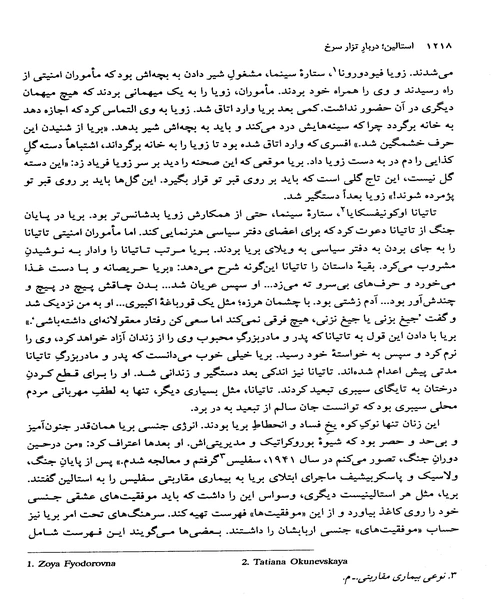 ۱۲۱۸ استالین؛ دربارِ تزار سرخ
می‌شدند. زویا فیودورونا۱، ستارهٔ سینما، مشغولِ شیر دادن به بچه‌اش بود که مأموران امنیتی از
راه رسیدند و وی را همراه خود بردند. مأموران، زویا را به یک میهمانی بردند که هیچ میهمان
دیگری در آن حضور نداشت. کمی بعد بریا وارد اتاق شد. زویا به وی التماس کرد که اجازه دهد
به خانه برگردد چرا که سینه‌هایش درد می‌کند و باید به بچه‌اش شیر بدهد. «بریا از شنیدن این
حرف خشمگین شد.» افسری که وارد اتاق شده بود تا زویا را به خانه برگرداند، اشتباهاً دسته گلِ
کذایی را دم در به دست زویا داد. بریا موقعی که این صحنه را دید بر سر زویا فریاد زد: «این دسته
گل نیست، این تاج گلی است که باید بر روی قبر تو قرار بگیرد. این گل‌ها باید بر روی قبر تو
پژمرده شوند!» زویا بعداً دستگیر شد.
تاتیانا اوکونیفسکایا۲، ستارهٔ سینما، حتی از همکارش زویا بدشانس‌تر بود. بریا در پایان
جنگ از تاتیانا دعوت کرد که برای اعضای دفتر سیاسی هنرنمایی کند. اما مأموران امنیتی تاتیانا
را به جای بردن به دفتر سیاسی به ویلای بریا بردند. بریا مرتب تاتیانا را وادار به نوشیدنِ
مشروب می‌کرد. بقیهٔ داستان را تاتیانا این‌گونه شرح می‌دهد: «بریا حریصانه و با دست غذا
می‌خورد و حرف‌های بی‌سرو ته می‌زد... او سپس عریان شد... بدن چاقش پیچ در پیچ و
چندش‌آور بود... آدم زشتی بود. با چشمان هرزه؛ مثل یک قورباغهٔ اکبیری... او به من نزدیک شد
و گفت 'جیغ بزنی یا جیغ نزنی، هیچ فرقی نمی‌کند اما سعی کن رفتار معقولانه‌ای داشته‌باشی'.»
بریا با دادن این قول به تاتیانا که پدر و مادربزرگِ محبوب وی را از زندان آزاد خواهد کرد، وی را
نرم کرد و سپس به خواستهٔ خود رسید. بریا خیلی خوب می‌دانست که پدر و مادربزرگِ تاتیانا
مدتی پیش اعدام شده‌اند. تاتیانا نیز اندکی بعد دستگیر و زندانی شد. او را برای قطع کردنِ
درختان به تایگای سیبری تبعید کردند. تاتیانا، مثل بسیاری دیگر، تنها به لطفِ مهربانی مردم
محلی سیبری بود که توانست جان سالم از تبعید به در برد.
این زنان تنها نوکِ کوه یخِ فساد و انحطاطِ بریا بودند. انرژی جنسی بریا همان‌قدر جنون‌آمیز
و بی‌حد و حصر بود که شیوهٔ بوروکراتیک و مدیریتی‌اش. او بعدها اعتراف کرد: «من درحین
دورانِ جنگ، تصور می‌کنم در سال ۱۹۴۱، سفلیس۳ گرفتم و معالجه شدم.» پس از پایانِ جنگ،
ولاسیک و پاسکربیشیف ماجرای ابتلای بریا به بیماری مقاربتی سفلیس را به استالین گفتند.
بریا، مثل هر استالینیست دیگری، وسواس این را داشت که باید موفقیت‌های عشقی جنسی
خود را روی کاغذ بیاورد و از این «موفقیت‌ها» فهرست تهیه کند. سرهنگ‌های تحت امر بریا نیز
حساب «موفقیت‌های» جنسی اربابشان را داشتند. بعضی‌ها می‌گویند این فهرست شامل
1. Zoya Fyodorovna 2. Tatiana Okunevskaya
۳. نوعی بیماری مقاربتی..م.